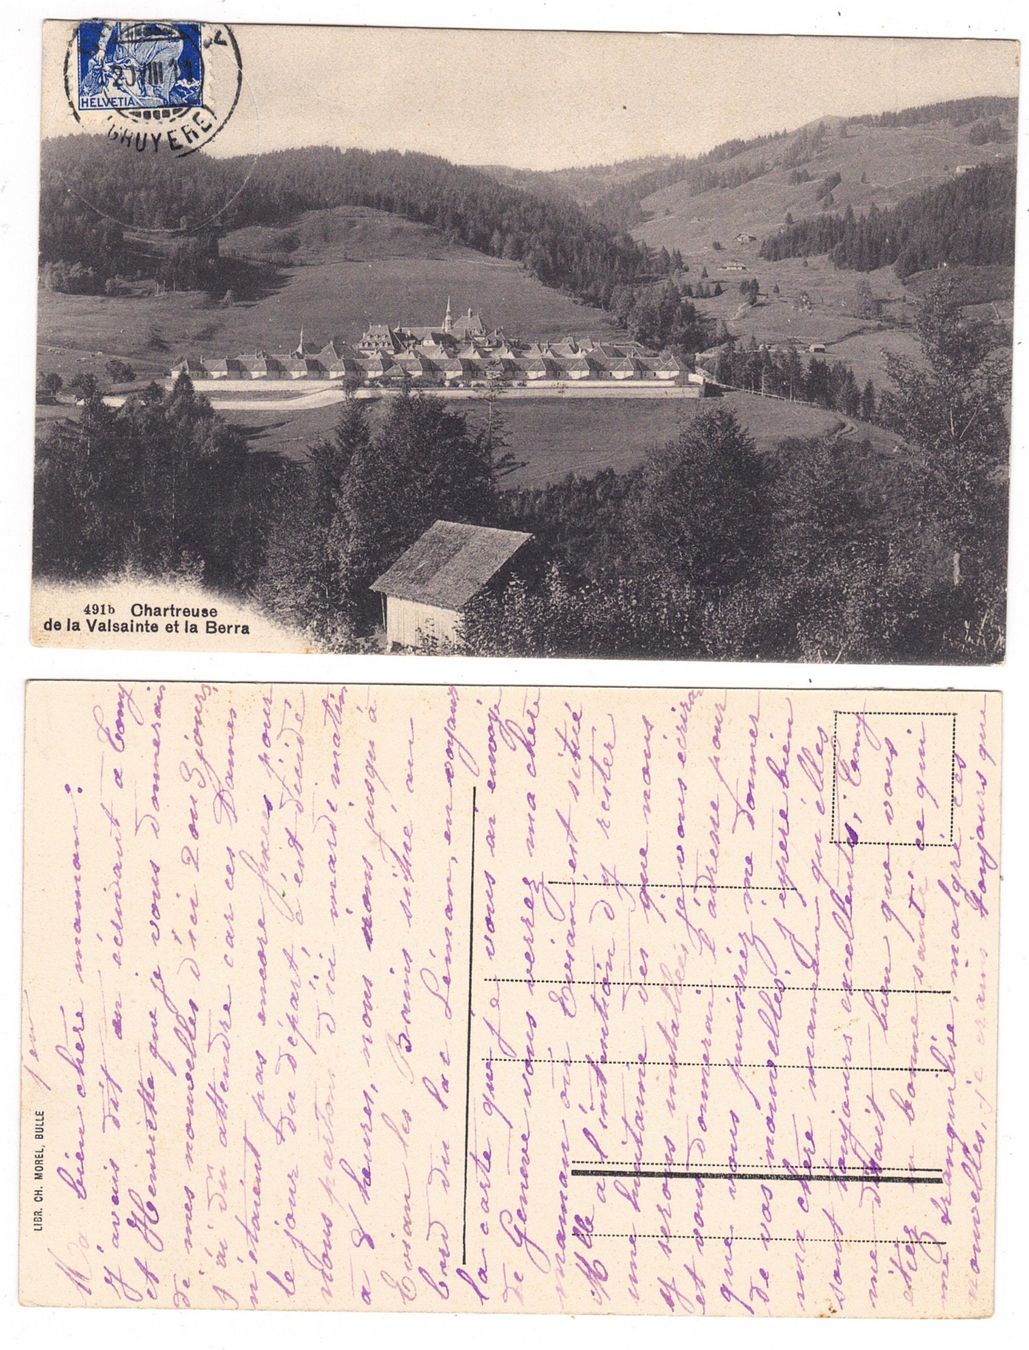 20 VIII 11
HELVETIA
(GRUYERE)
491b Chartreuse
de la Valsainte et la Berra
LIBR. CH. MOREL, BULLE
Ma bien chère maman:
J'avais dit en écrivant à Tony
et Henriette que je vous donnerais
de mes nouvelles d'ici 2 ou 3 jours,
J'ai du attendre car ces Dames
n'étaient pas encore fixées pour
le jour du départ, c'est décidé
nous partons d'ici mardi matin
à 8 heures, nous irons jusqu'à
Evian les Bains situé au
bord du lac Léman, en voyant
la carte que je vous ai envoyé
de Genève vous verrez ma chère
maman où Evian est situé
Mlle a l'intention d'y rester
une huitaine dès que nous
y serons installées je vous écrirai
et vous donnerai l'adresse pour
que vous puissiez me donner
de vos nouvelles, j'espère bien
ma chère maman qu'elles
sont toujours excellentes, Tony
me disait bien que vous
étiez en bonne santé ce qui
me tranquilise, malgré ces
nouvelles, je crains toujours que